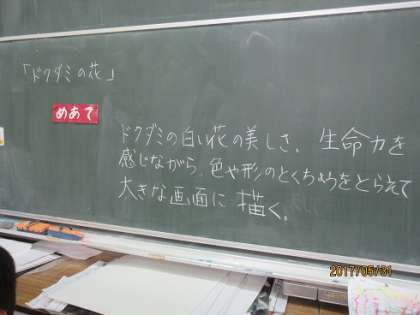 「ドクダミの花」
めあて
ドクダミの白い花の美しさ、生命力を
感じながら、色や形のとくちょうをとらえて
大きな画面に描く。
2017/05/31